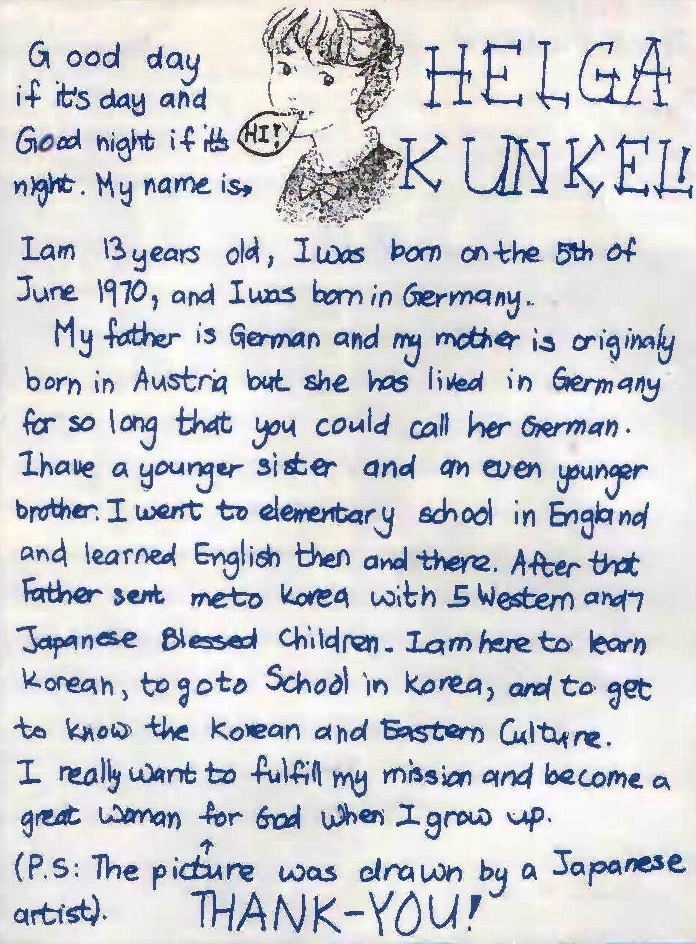 Good day
if it's day and
Good night if it's
night. My name is→
HI!
HELGA
KUNKEL!
I am 13 years old, I was born on the 5th of
June 1970, and I was born in Germany.
My father is German and my mother is originaly
born in Austria but she has lived in Germany
for so long that you could call her German.
I have a younger sister and an even younger
brother. I went to elementary school in England
and learned English then and there. After that
Father sent me to Korea with 5 Western and 7
Japanese Blessed Children. I am here to learn
Korean, to go to School in Korea, and to get
to know the Korean and Eastern Culture.
I really want to fulfill my mission and become a
great woman for God when I grow up.
(P.S: The picture was drawn by a Japanese
artist). THANK-YOU!